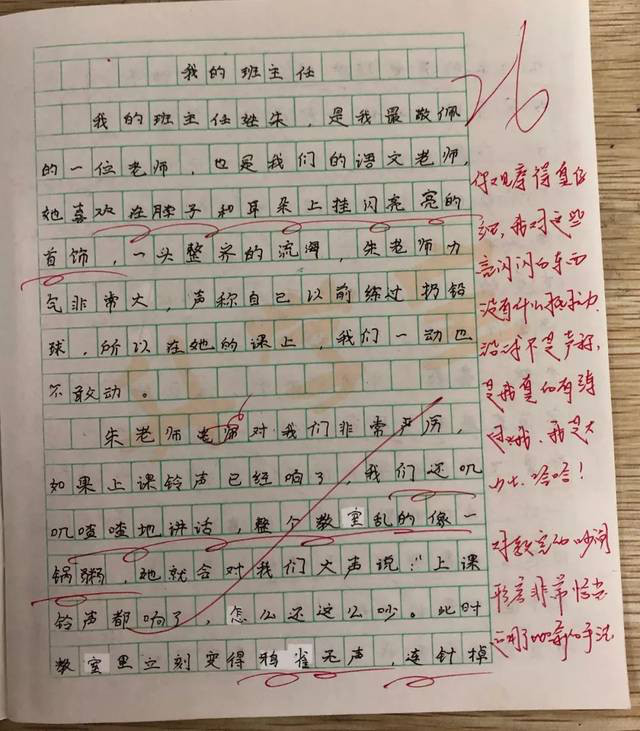 我的班主任
我的班主任姓朱，是我最敬佩
的一位老师，也是我们的语文老师，
她喜欢在脖子和耳朵上挂闪亮亮的
首饰，一头整齐的流海，朱老师力
气非常大，声称自己以前练过扔铅
球，所以在她的课上，我们一动也
不敢动。
朱老师老师对我们非常严厉，
如果上课铃声已经响了，我们还叽
叽喳喳地讲话，整个教室乱的像一
锅粥，她就会对我们大声说："上课
铃声都响了，怎么还这么吵。此时
教室里立刻变得鸦雀无声，连针掉
26
你观察得真仔
，我对这些
亮闪闪的东西
没有什么抵抗力
不是声称，
是我真的有练
过，我是大
力士，哈哈！
对教室的吵闹
形容非常恰当
运用了比喻的手法